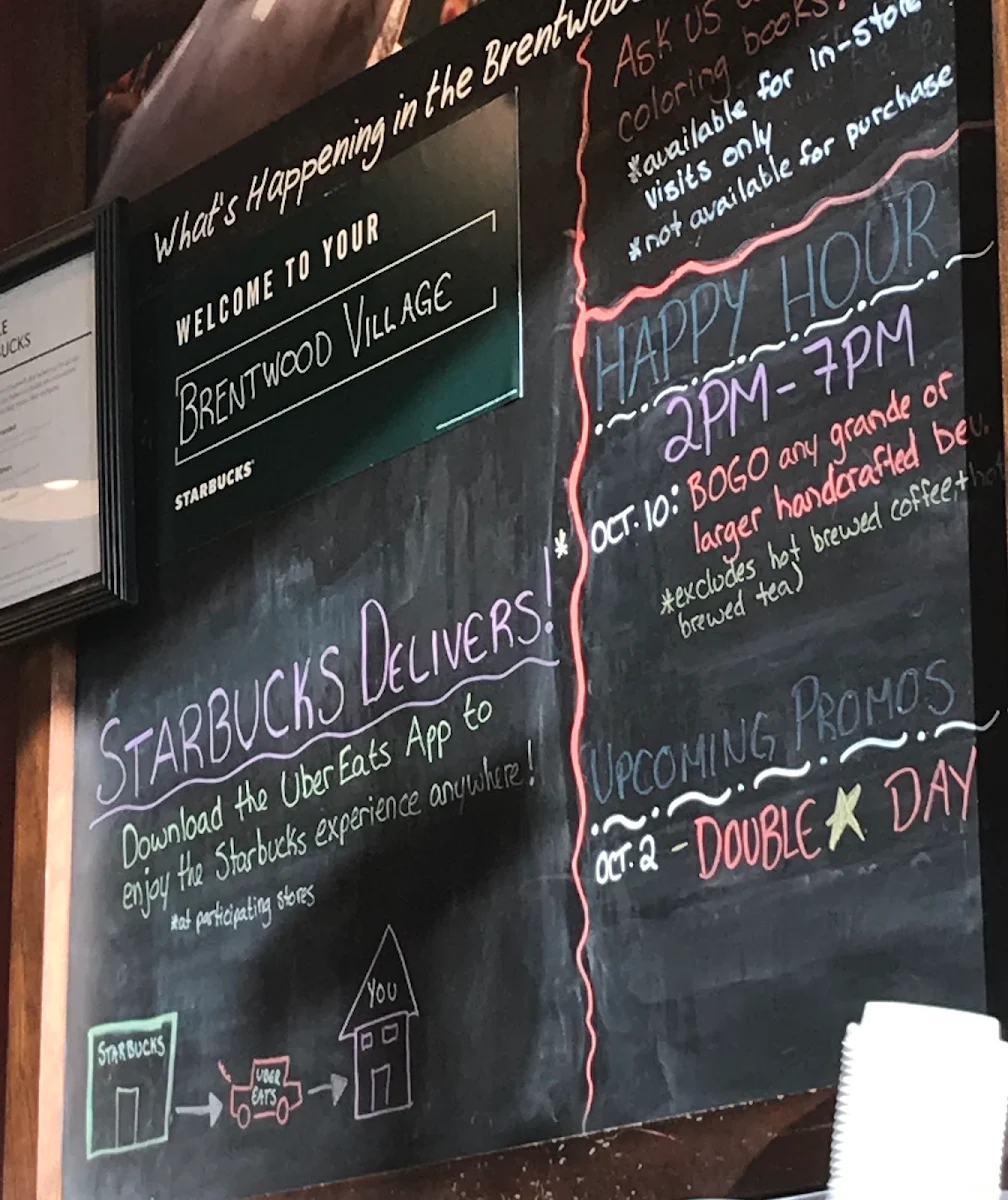 What's Happening in the Brentwoo
WELCOME TO YOUR
BRENTWOOD VILLAGE
STARBUCKS
UCKS
STARBUCKS DELIVERS!*
Download the UberEats App to
enjoy the Starbucks experience anywhere!
*at participating stores
STARBUCKS
UBER
EATS
YOU
ASK US
coloring books!
*available for in-store
visits only
*not available for purchase
HAPPY HOUR
2PM-7PM
OCT. 10: BOGO any grande or
larger handcrafted bev.
*excludes hot brewed coffee, + ho
brewed tea)
UPCOMING PROMOS
OCT. 2 - DOUBLE ★ DAY